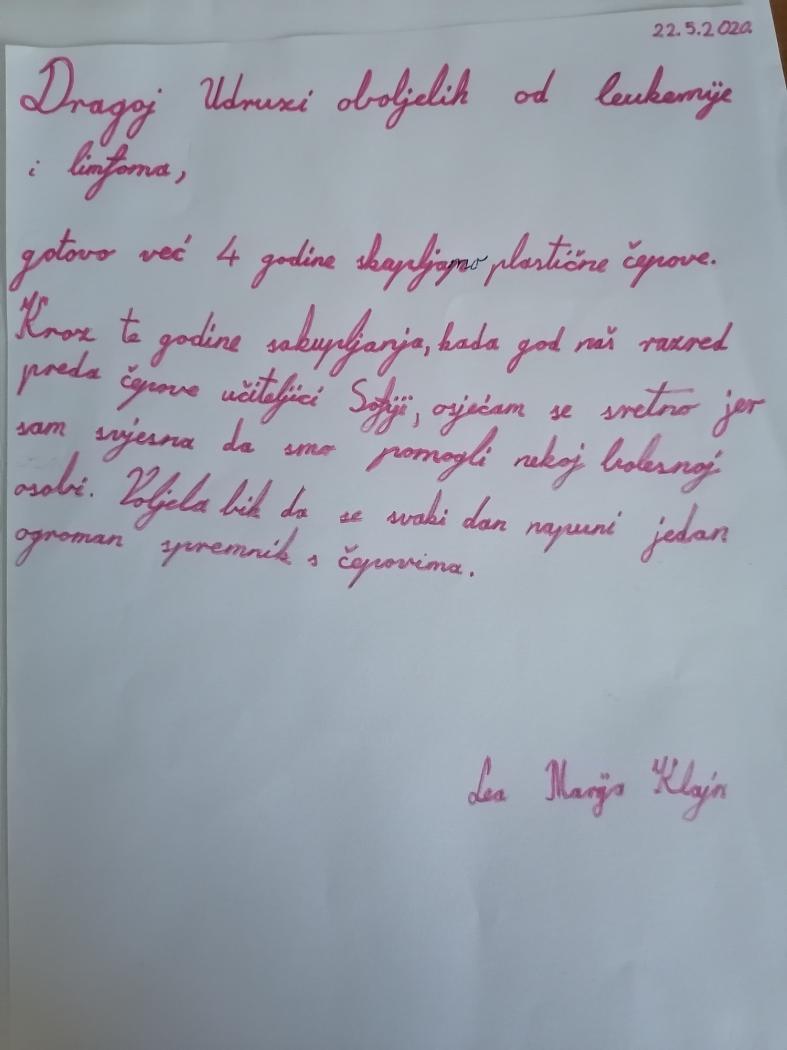 22.5.2020.
Dragoj Udruzi oboljelih od leukemije
i limfoma,
gotovo već 4 godine skupljamo plastične čepove.
Kroz te godine sakupljanja, kada god naš razred
preda čepove učiteljici Sofiji, osjećam se sretno jer
sam svjesna da smo pomogli nekoj bolesnoj
osobi. Voljela bih da se svaki dan napuni jedan
ogroman spremnik s čepovima.
Lea Marija Klajn